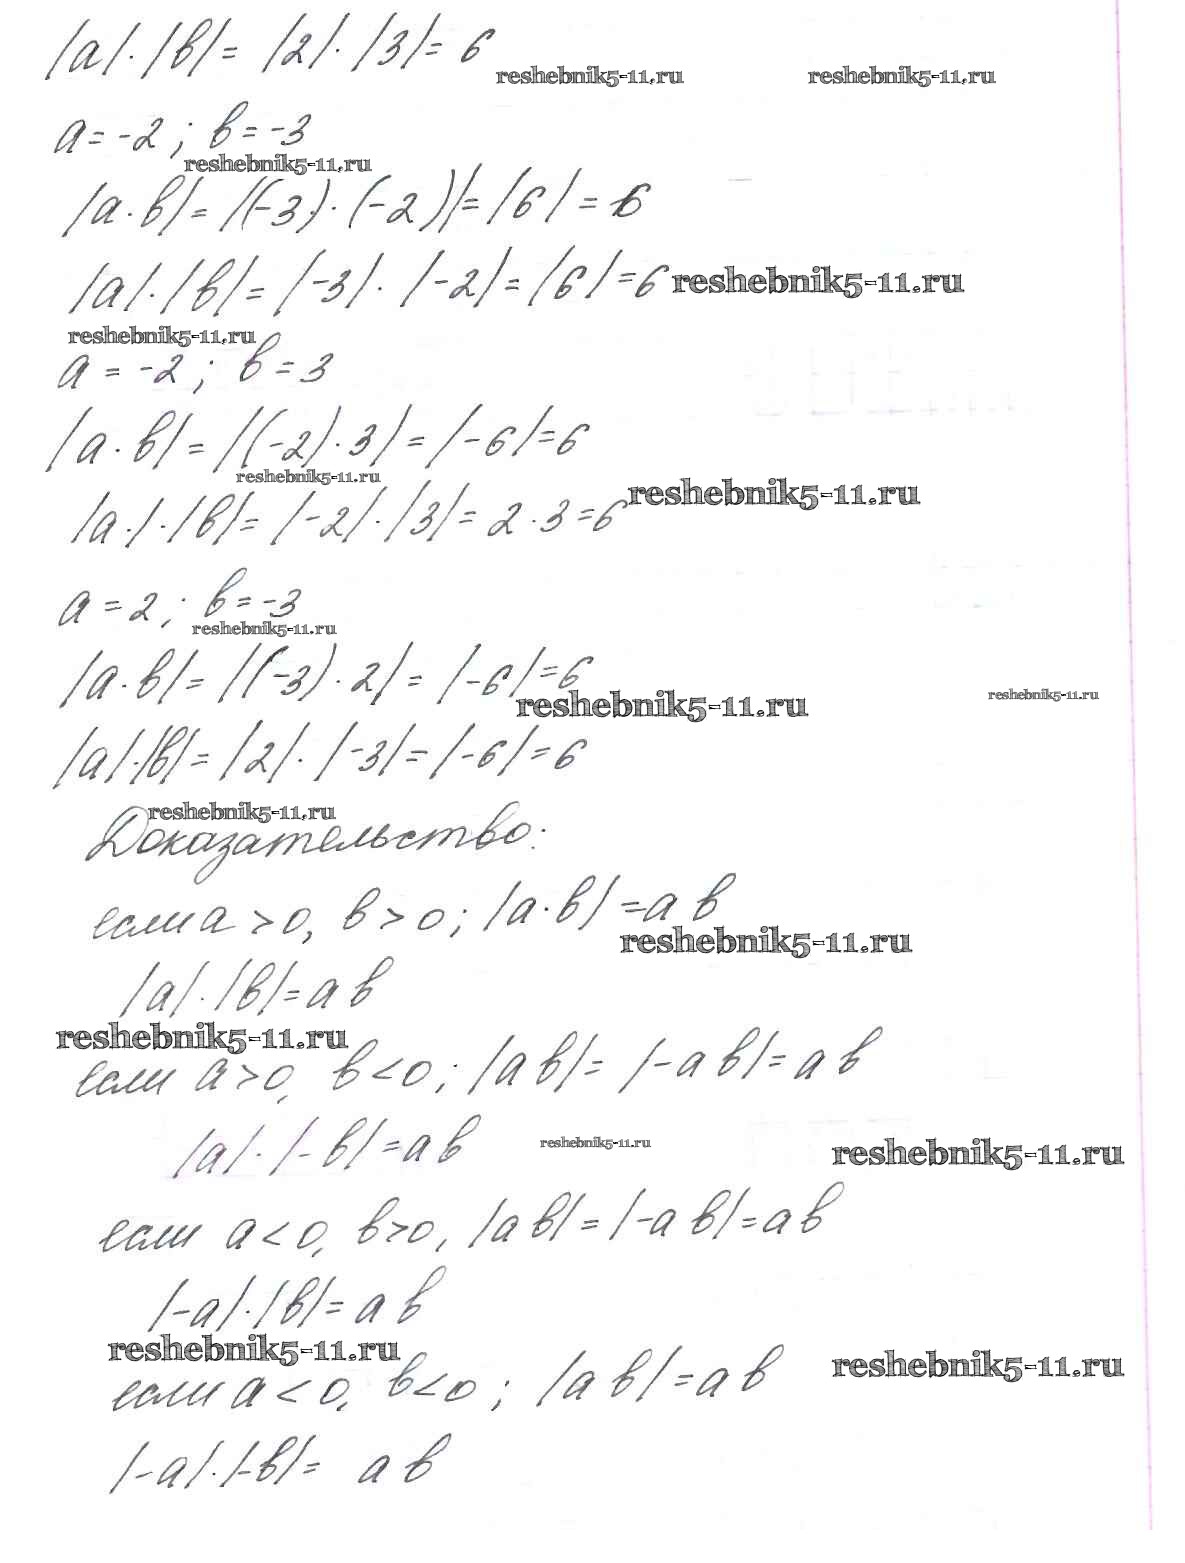 |a|·|b|= |2|·|3|= 6
reshebnik5-11.ru reshebnik5-11.ru
a=-2; b=-3
reshebnik5-11.ru
|a·b|= |(-3)·(-2)|=|6|=6
|a|·|b|= |-3|·|-2|=|6|=6 reshebnik5-11.ru
reshebnik5-11.ru
a = -2; b=3
|a·b|= |(-2)·3|= |-6|=6
reshebnik5-11.ru
reshebnik5-11.ru
|a·|·|b|= |-2|·|3|= 2·3=6
a=2; b=-3
reshebnik5-11.ru
|a·b|= |(-3)·2|= |-6|=6
reshebnik5-11.ru reshebnik5-11.ru
|a|·|b|= |2|·|-3|= |-6|=6
reshebnik5-11.ru
Доказательство:
если a>0, b>0; |a·b|=ab
reshebnik5-11.ru
|a|·|b|=ab
reshebnik5-11.ru
если a>0, b<0; |ab|= |-ab|=ab
|a|·|-b|=ab
reshebnik5-11.ru reshebnik5-11.ru
если a<0, b>0, |ab|=|-ab|=ab
|-a|·|b|=ab
reshebnik5-11.ru reshebnik5-11.ru
если a<0, b<0; |ab|=ab
|-a|·|-b|= ab